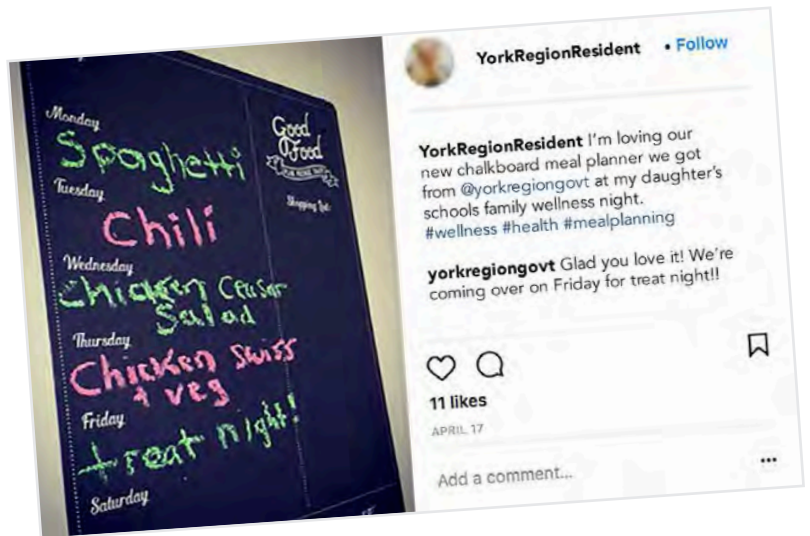 Monday
Spaghetti
Tuesday
Chili
Wednesday
Chicken Ceasar
Salad
Thursday
Chicken Swiss
+ veg
Friday
treat night!
Saturday
Good
Food
Shopping List:
YorkRegionResident • Follow
YorkRegionResident I'm loving our
new chalkboard meal planner we got
from @yorkregiongovt at my daughter's
schools family wellness night.
#wellness #health #mealplanning
yorkregiongovt Glad you love it! We're
coming over on Friday for treat night!!
11 likes
APRIL 17
Add a comment...